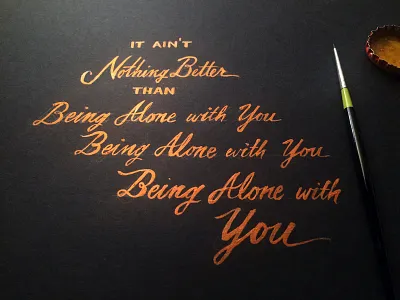 IT AIN'T
Nothing Better
THAN
Being Alone with You
Being Alone with You
Being Alone with
You